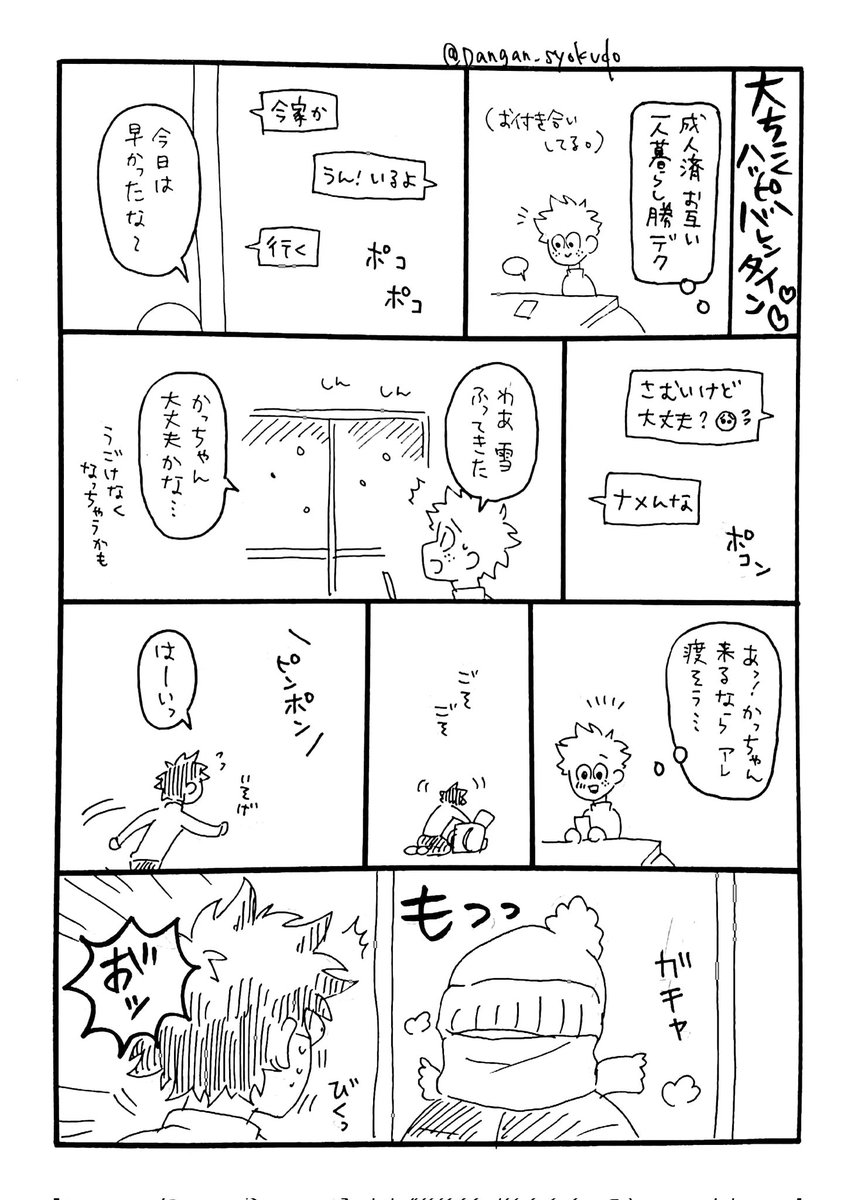 @Dangan_syokudo
大ちこく
ハッピーバレンタイン♡♡
成人済 お互い
一人暮らし勝デク
(お付き合い
してる。)
今家か
うん!いるよ
行く
ポコ
ポコ
今日は
早かったな〜
さむいけど
大丈夫?
ナメんな
ポコン
わあ 雪
ふってきた
しん
しん
かっちゃん
大丈夫かな…
うごけなく
なっちゃうかも
あっ!かっちゃん
来るなら アレ
渡そう…
ごそ
ごそ
ピンポン
はーいっ
いそげ
ガチャ
もっっ
びくっ